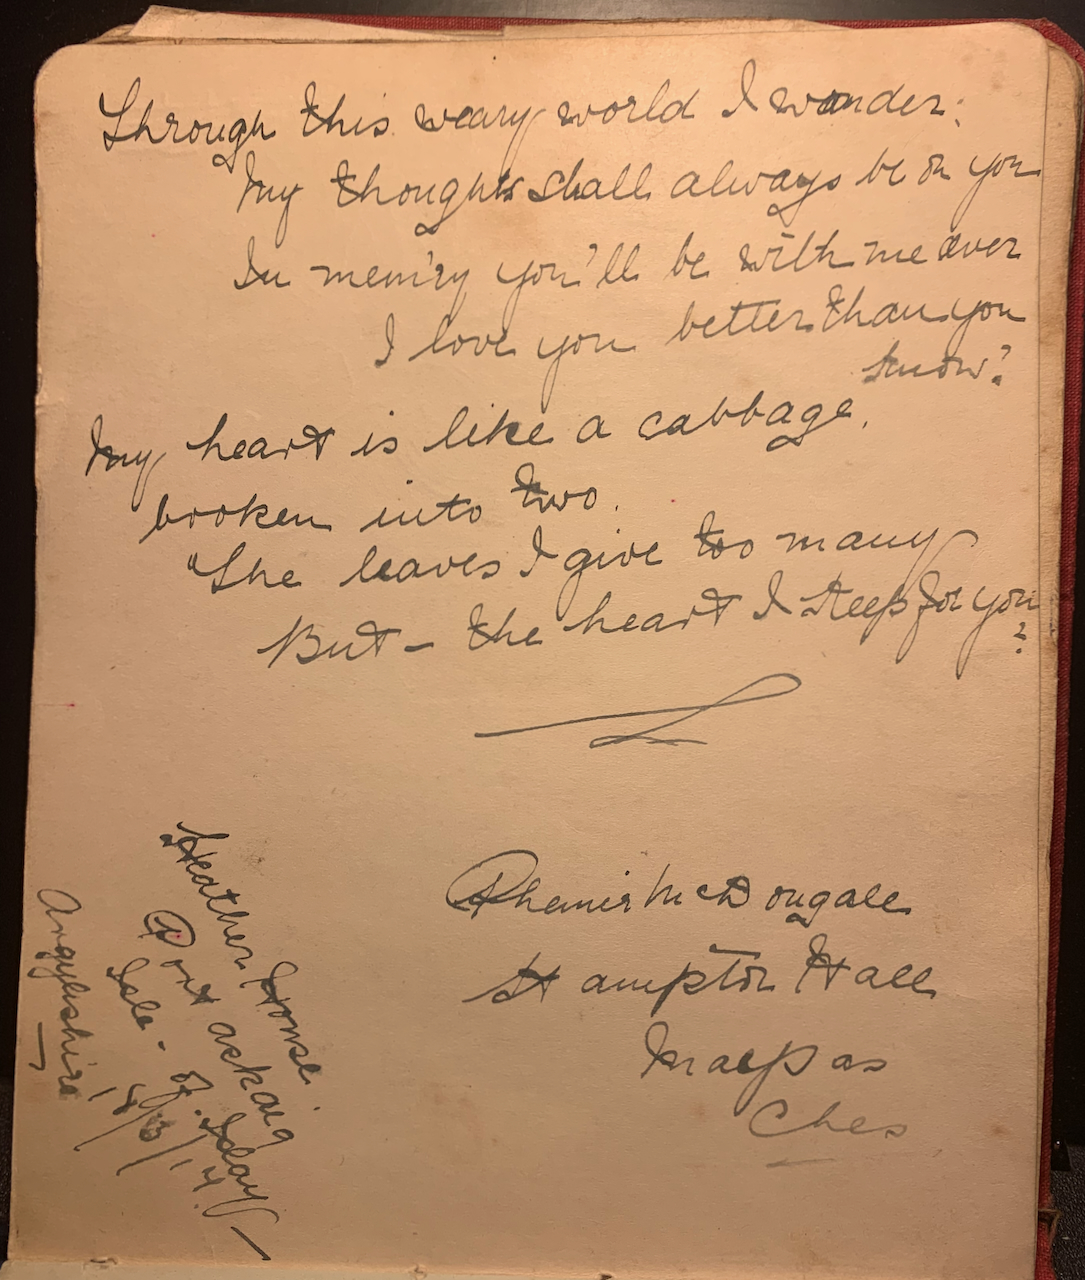 Through this weary world I wander:
My thoughts shall always be on you
In mem'ry you'll be with me ever
I love you better than you
know?
My heart is like a cabbage,
broken into two.
The leaves I give too many
But - the heart I keep for you
?
Phemie McDougall
Hampton Hall
Malpas
Ches
Heather House.
Port askaig
Isle - of. Islay -
Argyleshire
18/3/14.